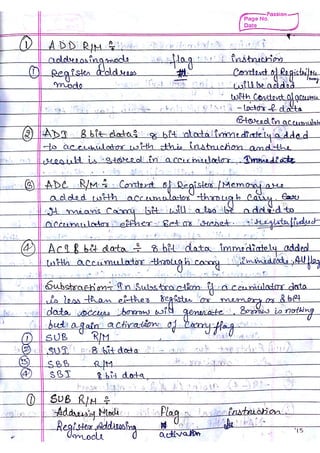 Passion
Page No.
Date
① ADD R/M ÷
addressing mode flag instruction
① Register address Content of Register/
mode will be added
with Content of accumu
-lator & data
Stored in accumulator
② ADI 8 bit data ÷ 8 bit data immediately added
to accumulator with this instruction and the
result is stored in accumulator. Immediate
③ ADC R/M ÷ Content of Register / Memory are
added with accumulator through Carry.
It means Carry bit will also be added to
accumulator either set or reset.
④ ACI 8 bit data ÷ 8 bit data immediately added
with accumulator through carry immediate, All flag
Substraction ÷ In Substraction if accumulator data
is less than either Register or memory or 8 bit
data occurs borrow will generate. Borrow is nothing
but again activation of Carry flag
① SUB R/M
② SUI 8 bit data
③ SBB R/M
④ SBI 8 bit data
① SUB R/M ÷
Addressing Mode Flag instruction
Register Addressing
mode activation
'15